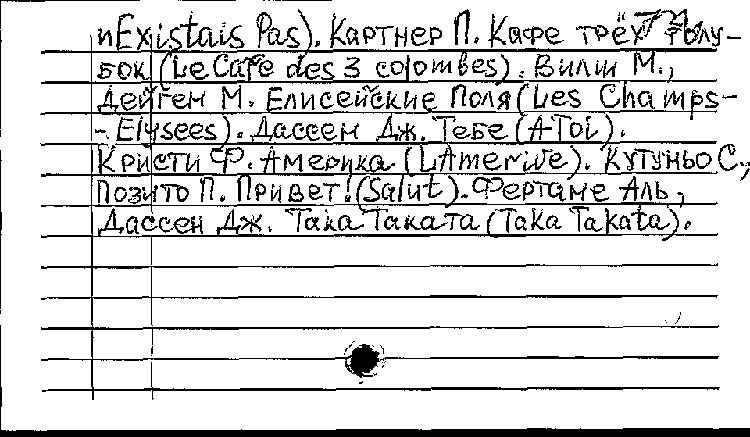 nExistais Pas). Картнер П. Кафе трёх голу-
бок (Le Cafe des 3 colombes). Вилли М.,
Дейген М. Елисейские Поля (Les Champs-
- Elysees). Дассен Дж. Тебе (A Toi).
Кристи Ф. Америка (LAmerive). Кутуньо С.,
Позито П. Привет! (Salut). Фертаме Аль,
Дассен Дж. Така Таката (Taka Takata).